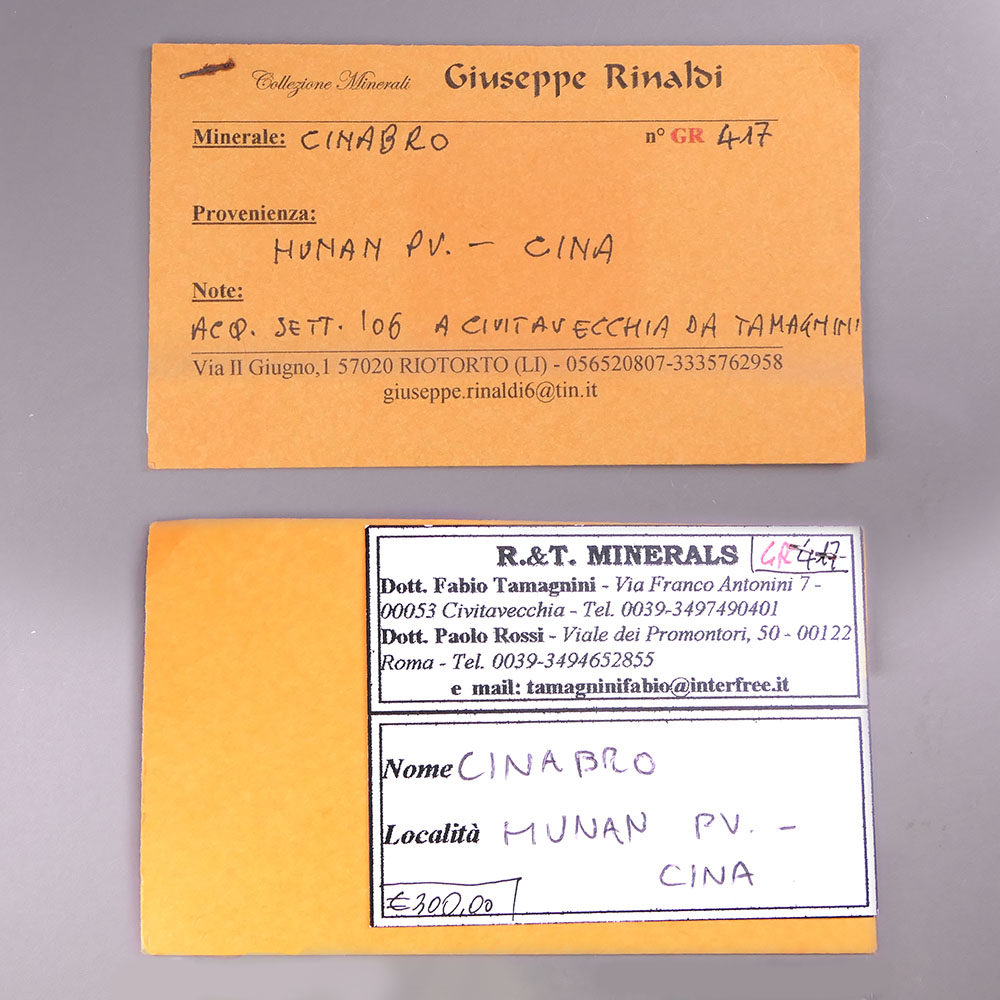 Collezione Minerali Giuseppe Rinaldi
Minerale: CINABRO n° GR 417
Provenienza:
HUNAN PV. – CINA
Note:
ACQ. SETT. '06 A CIVITAVECCHIA DA TAMAGNINI
Via II Giugno,1 57020 RIOTORTO (LI) - 056520807-3335762958
giuseppe.rinaldi6@tin.it
R.&T. MINERALS GR 417
Dott. Fabio Tamagnini - Via Franco Antonini 7 -
00053 Civitavecchia - Tel. 0039-3497490401
Dott. Paolo Rossi - Viale dei Promontori, 50 - 00122
Roma - Tel. 0039-3494652855
e mail: tamagninifabio@interfree.it
Nome CINABRO
Località HUNAN PV. –
CINA
€300,00